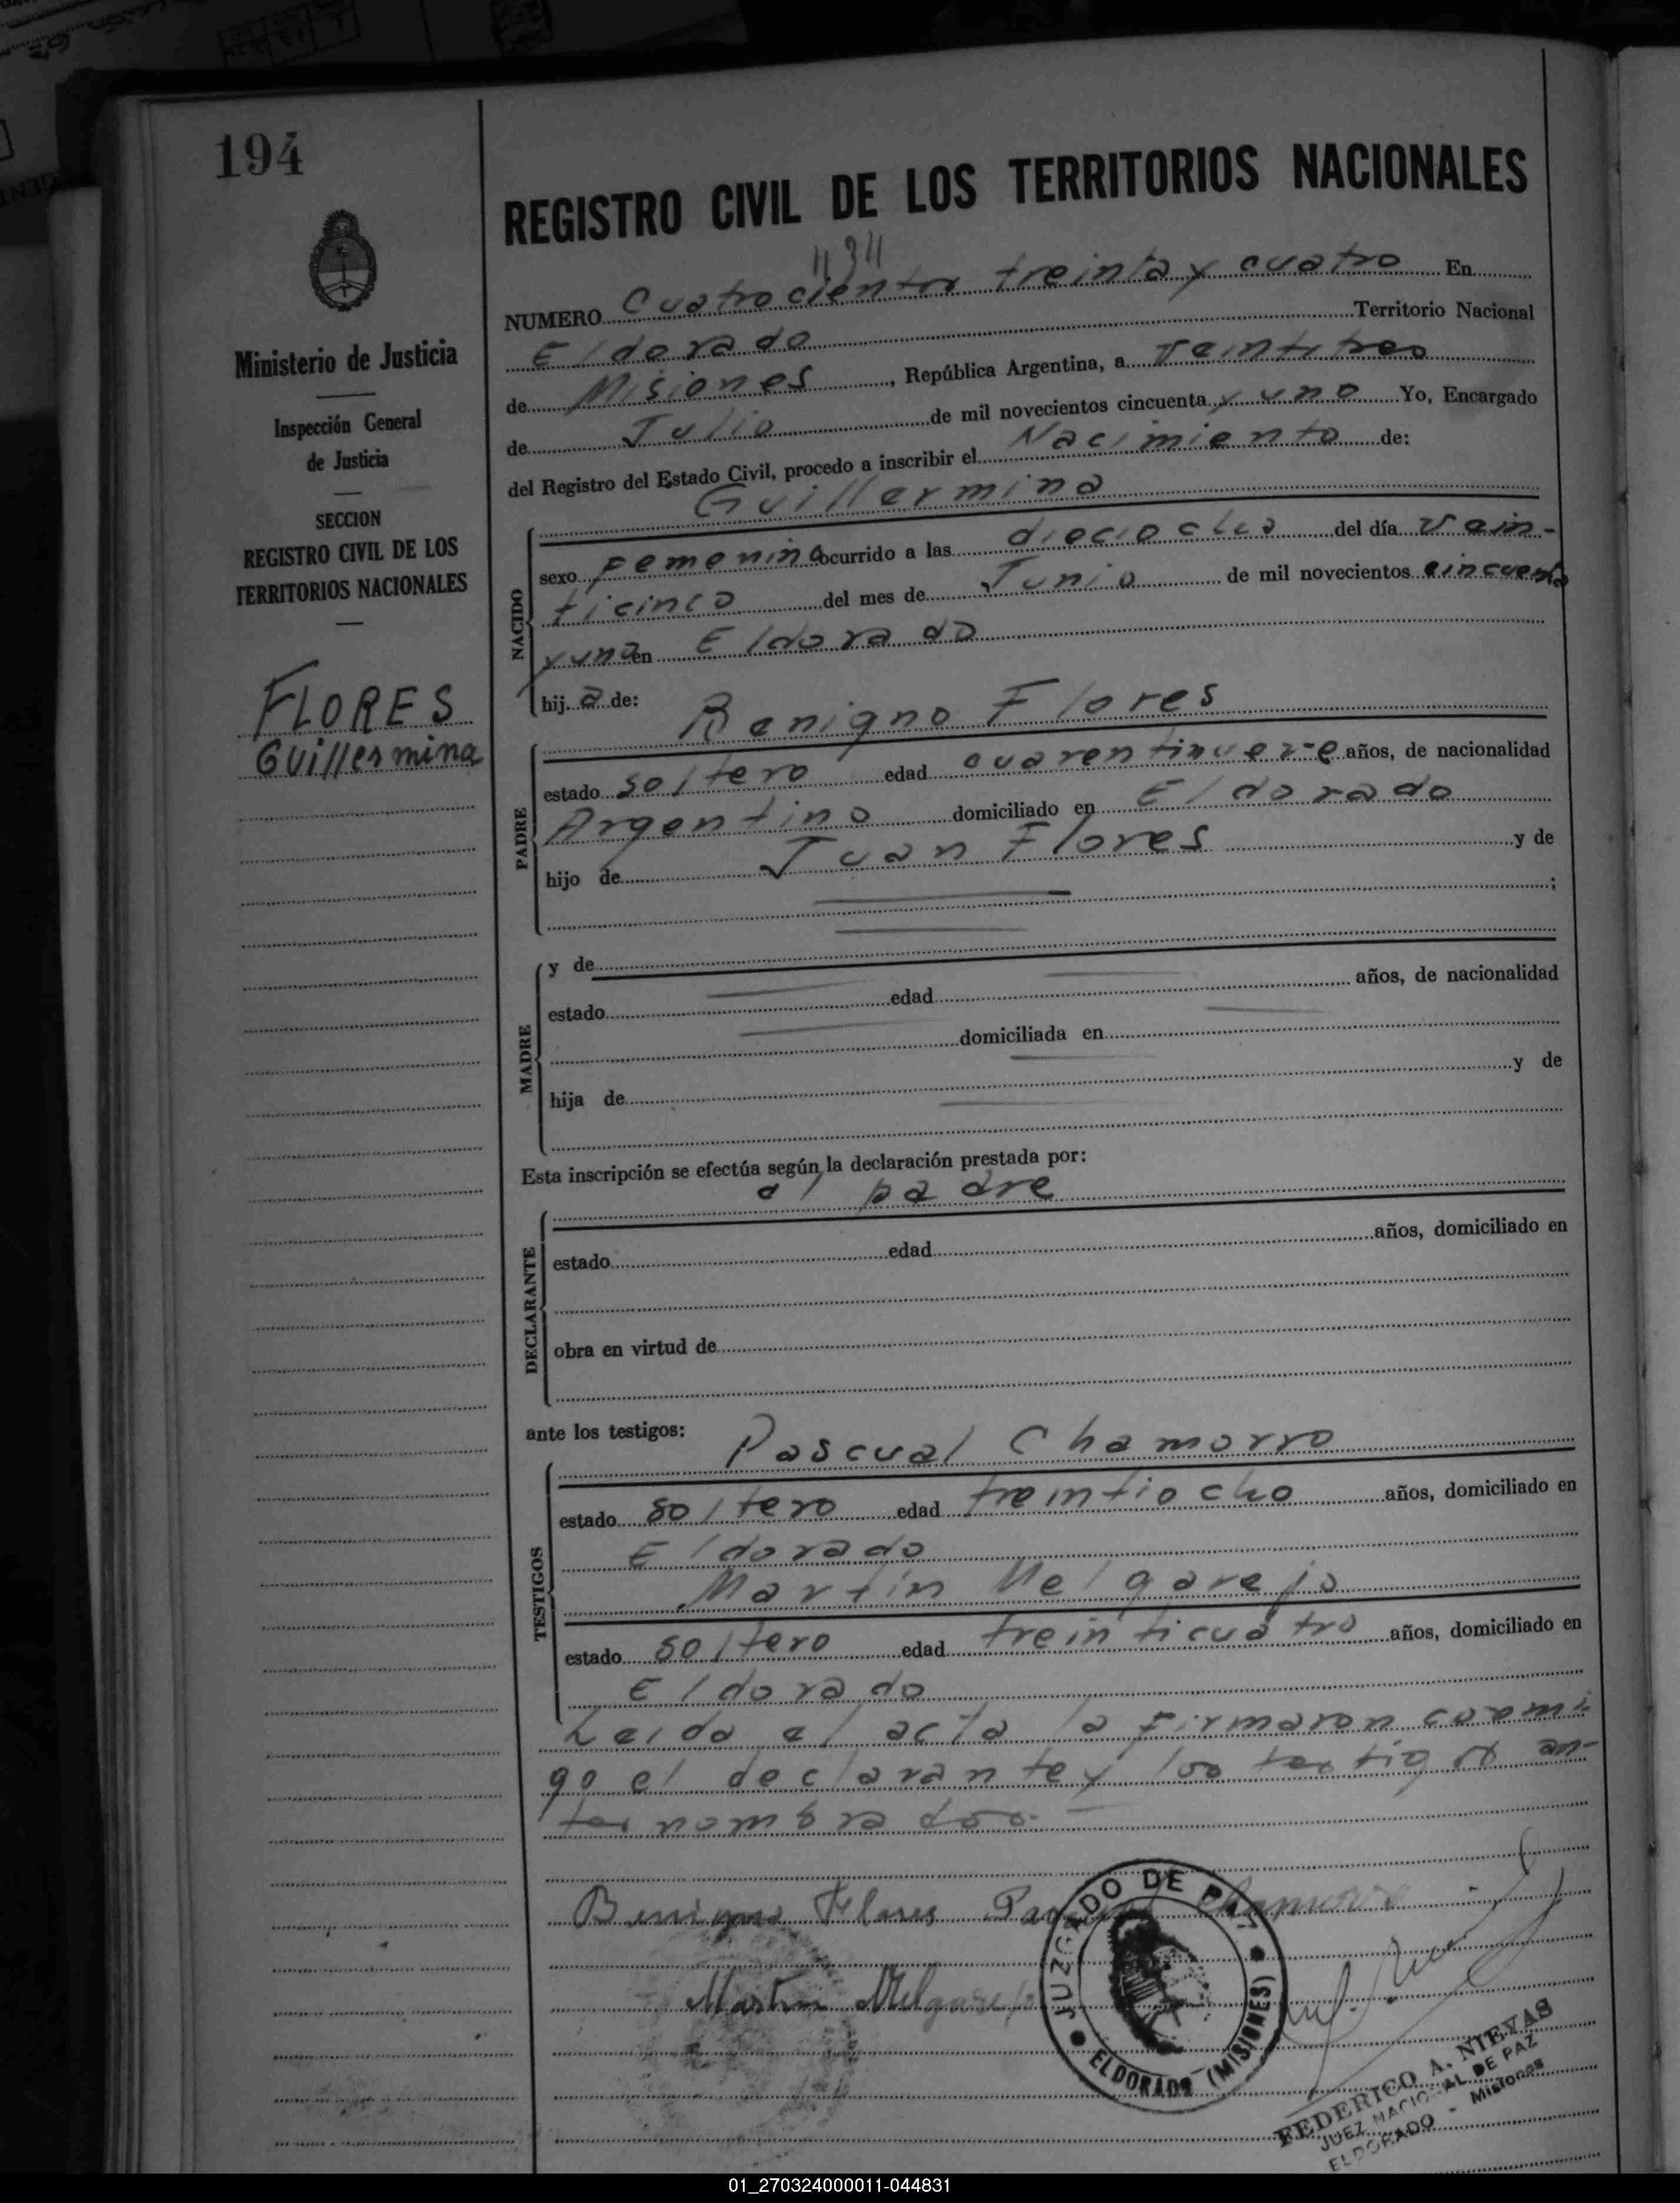 194
Ministerio de Justicia
Inspección General
de Justicia
SECCION
REGISTRO CIVIL DE LOS
TERRITORIOS NACIONALES
FLORES
Guillermina
REGISTRO CIVIL DE LOS TERRITORIOS NACIONALES
NUMERO Cuatrocientos treinta y cuatro En
Eldorado Territorio Nacional
de Misiones, República Argentina, a Veintitres
de Julio de mil novecientos cincuenta y uno Yo, Encargado
del Registro del Estado Civil, procedo a inscribir el Nacimiento de:
Guillermina
NACIDO
sexo Femenino ocurrido a las dieciocho del día vein-
ticinco del mes de Junio de mil novecientos cincuenta
y uno en Eldorado
hij a de:
Benigno Flores
PADRE
estado soltero edad cuarentinueve años, de nacionalidad
Argentino domiciliado en Eldorado
hijo de Juan Flores y de
;
MADRE
y de
estado edad años, de nacionalidad
domiciliada en
hija de y de
Esta inscripción se efectúa según la declaración prestada por:
el padre
DECLARANTE
estado edad años, domiciliado en
obra en virtud de
ante los testigos:
Pascual Chamorro
TESTIGOS
estado soltero edad treintiocho años, domiciliado en
Eldorado
Martín Melgarejo
estado soltero edad treinticuatro años, domiciliado en
Eldorado
Leida el acta la firmaron conmi-
go el declarante y los testigos an-
tes nombrados.—
Benigno Flores Pascual Chamorro
Martin Melgarejo
JUZGADO DE PAZ
ELDORADO (MISIONES)
FEDERICO A. NIEVAS
JUEZ NACIONAL DE PAZ
ELDORADO - Misiones
01_270324000011-044831